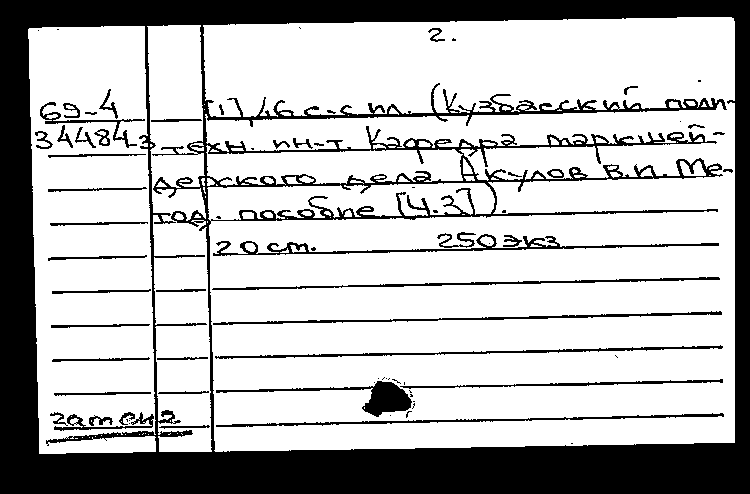 2.
69-4 [1], 46 с. с ил. (Кузбасский поли-
34484-3 техн. ин-т. Кафедра маркшей-
дерского дела. Акулов В.п. Ме-
тод. пособие [Ч.3]).
20 см. 250 экз